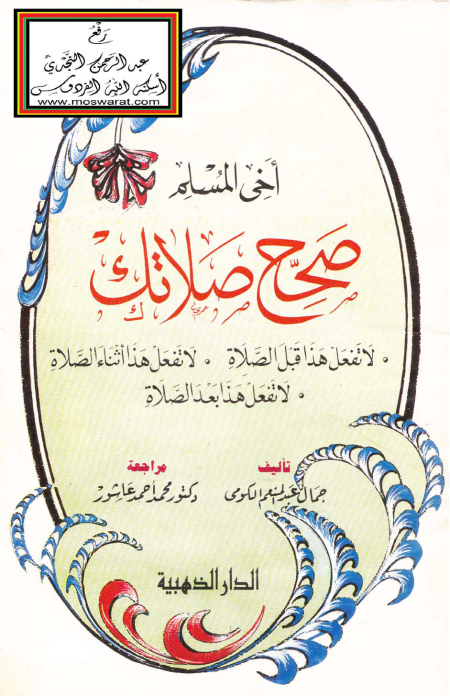 رَفْعُ
عبد الرحمن النجدي
أسكنه الله الفردوس
www.moswarat.com
أخي المُسْلِم
صَحِّح صَلاتك
• لَا تَفعَل هَذا قَبلَ الصَّلَاةِ • لَا تَفعَل هَذا أَثنَاءَ الصَّلَاةِ
• لَا تَفعَل هَذا بَعدَ الصَّلَاةِ
تأليف
مراجعة
جمال عبد المنعم الكومى
دكتور محمد أحمد عاشور
الدار الذهبية